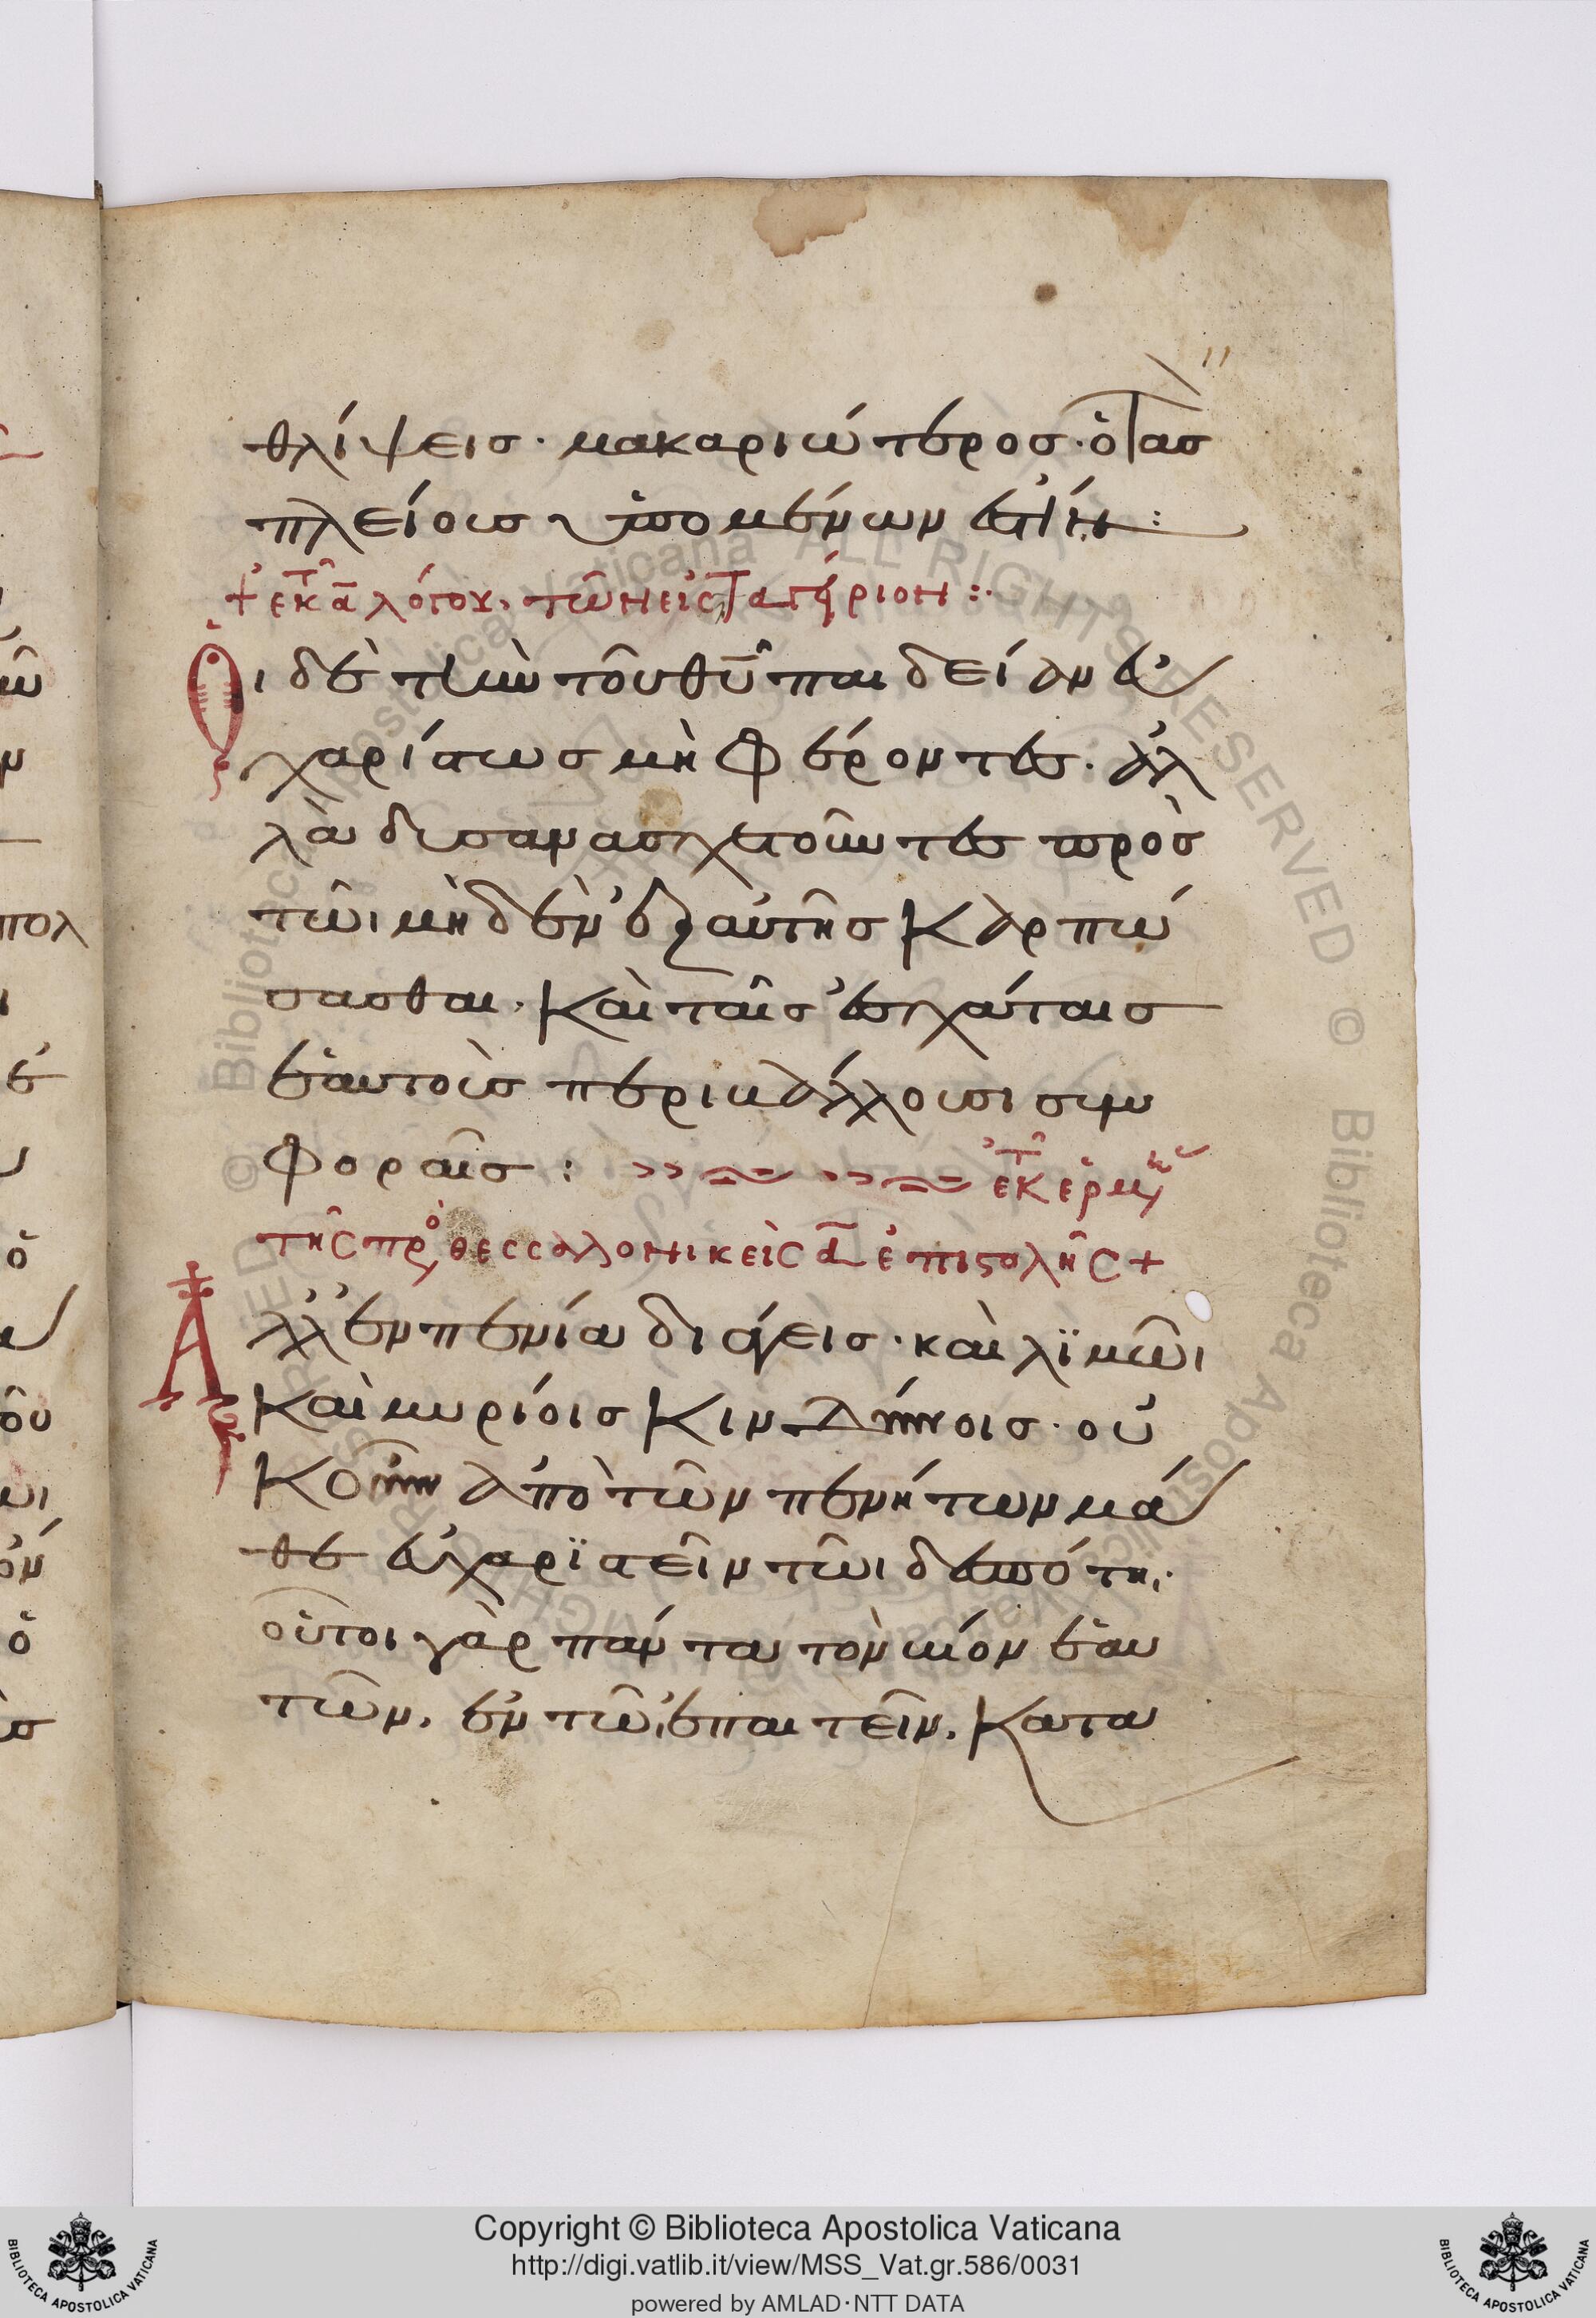 θλίψεις· μακαριώτερος· ὁ τὰς
πλείους ὑπομένων ἐστίν:
+ ἐκ τοῦ α λόγου, τῶν εἰς Σταγείριον:·
Οἱ δὲ τὴν τοῦ θυ παιδείαν εὐ
χαρίστως μὴ φέροντες. ἀλ
λὰ δυσανασχετοῦντες πρὸς
τῶι μηδὲν ἐξ αὐτῆς καρπώ
σασθαι. καὶ ταῖς ἐσχάταις
ἑαυτοὺς περιβάλλουσι συμ
φοραῖς: ἐκ τῆς ἑρμη
τῆς πρὸ θεσσαλονικεῖς α ἐπιστολῆς +
Ἀλλ' ἐν πενία διάγεις· καὶ λϊμῶι
καὶ μυρίοις κινδύνοις· οὐ
κοῦν ἀπὸ τῶν πενήτων μά
θε εὐχαρϊστεῖν τῶι δεσπότηι·
οὗτοι γὰρ πάντα τὸν βίον ἑαυ
τῶν, ἐν τῶι ἐπαιτεῖν, κατα
πολ
Copyright © Biblioteca Apostolica Vaticana
http://digi.vatlib.it/view/MSS_Vat.gr.586/0031
powered by AMLAD·NTT DATA